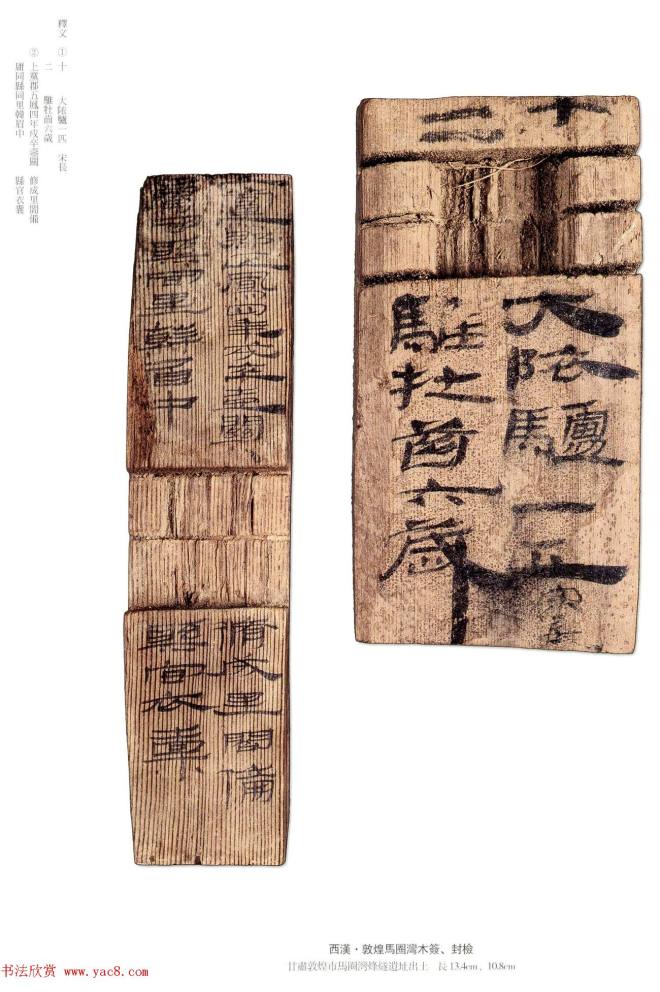 釋文 ①十 大陔驢一匹 宋長
二 騅牡齒六歲
②上黨郡五鳳四年戍卒壺關 修成里閻備
庸同縣同里韓眉中 縣官衣囊
十
二
大陔驢一匹 宋長
騅牡齒六歲
五鳳四年戍卒壺關
縣同里韓眉中
修成里閻備
縣官衣
西漢·敦煌馬圈灣木簽、封檢
甘肅敦煌市馬圈灣烽燧遺址出土 長 13.4cm、10.8cm
书法欣赏 www.yac8.com